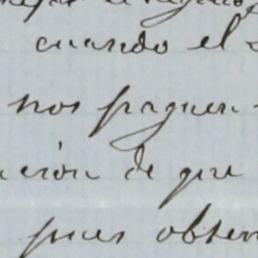 cuando el
nos paguen
ción de que
pues obser